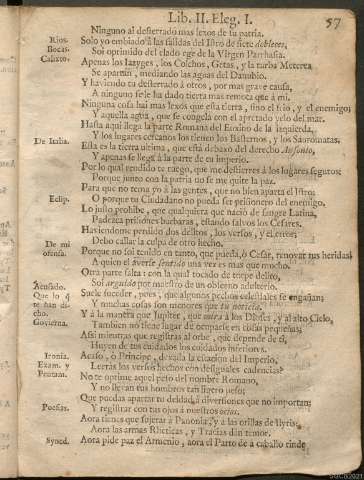 Lib. II. Eleg. I. 57
Ninguno al desterrado mas lexos de tu patria.
Rios. Solo yo embiado â las salidas del Istro de siete dobleces,
Bocas. Soi oprimido del elado exe de la Virgen Parrhasia.
Calixto. Apenas los Iazyges, los Colchos, Getas, y la turba Meterea
Se apartan, mediando las aguas del Danubio.
Y haviendo tu desterrado à otros, por mas grave causa,
A ninguno se le ha dado tierra mas remota que à mi.
Ninguna cosa hai mas lexos que esta tierra, sino el frio, y el enemigo;
Y aquella agua, que se congela con el apretado yelo del mar.
Hasta aqui llega la parte Romana del Euxino de la izquierda,
Y los lugares cercanos los tienen los Basternos, y los Sauromatas.
De Italia. Esta es la tierra ultima, que està debaxo del derecho Ausonio,
Y apenas se llega à la parte de tu imperio.
Por lo qual rendido te ruego, que me destierres à los lugares seguros:
Porque junto con la patria no se me quite la paz.
Para que no tema yo â las gentes, que no bien aparta el Istro;
Eclip. O porque tu Ciudadano no pueda ser prisionero del enemigo.
Lo justo prohibe, que qualquiera que naciò de sangre Latina,
Padezca prisiones barbaras, estando salvos los Cesares.
Haviendome perdido dos delitos, los versos, y el error;
Debo callar la culpa de otro hecho.
De mi Porque no soi tenido en tanto, que pueda, ò Cesar, renovar tus heridas;
ofensa. A quien el averse sentido una vez es mas que mucho.
Otra parte falta: con la qual tocado de torpe delito,
Acusado. Soi arguido por maestro de un obsceno adulterio.
Que lo q Suele suceder, pues, que algunos pechos celestiales se engañan;
te han di- Y muchas cosas son menores que tu noticia.
cho. Y à la manera que Jupiter, que mira à los Dioses, y al alto Cielo,
Govierna. Tambien no tiene lugar de ocuparse en cosas pequeñas;
Assi mientras que registras al orbe, que depende de si,
Huyen de tus cuidados los cuidados inferiores.
Ironia. Acaso, ò Principe, dexada la estacion del Imperio,
Exam. y Leeràs los versos hechos con desiguales cadencias?
Pentam. No te oprime aquel peso del nombre Romano,
Y no llevan tus hombros tan ligero peso;
Que puedas apartar tu deidad à diversiones que no importan;
Poesias. Y registrar con tus ojos â nuestros ocios.
Aora tienes que sujetar à Panonia, y à las orillas de Ilyris;
Aora las armas Rheticas, y Tracias dàn temor.
Syned. Aora pide paz el Armenio, aora el Parto de à caballo rinde